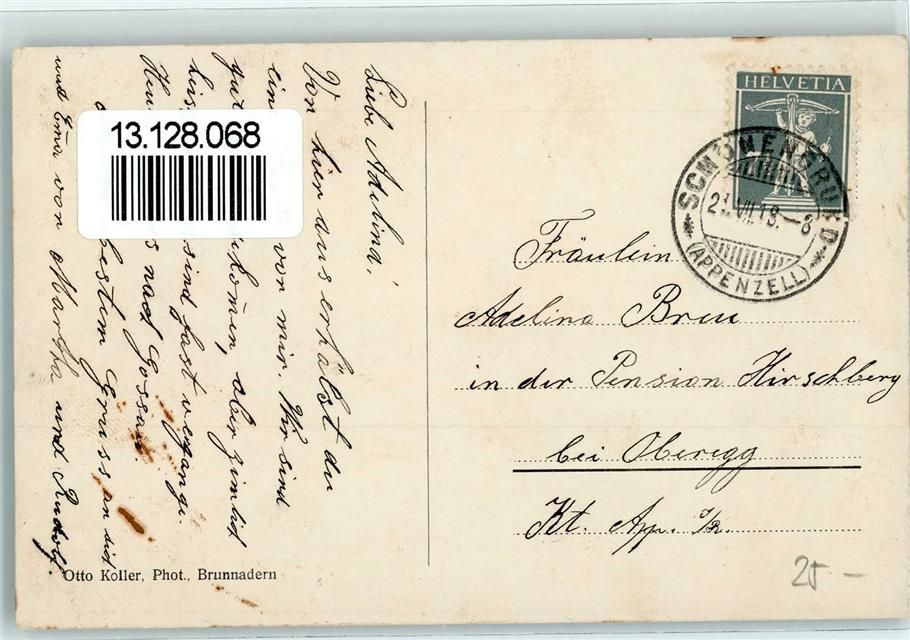 Liebe Adelina!
Von hier aus erhälst du
ein von mir. Wir sind
gut, aber zimlich
heis sind fast vergange.
Heu s nach Gossau.
bestem Gruss an dich
und Erna von Martha und Rudolf.
13.128.068
HELVETIA
SCHÖNENGRUND
VII.13.-8
(APPENZELL)
Fräulein
Adelina Breu
in der Pension Hirschberg
bei Oberegg
Kt. App. I/R.
Otto Koller, Phot., Brunnadern
25 –